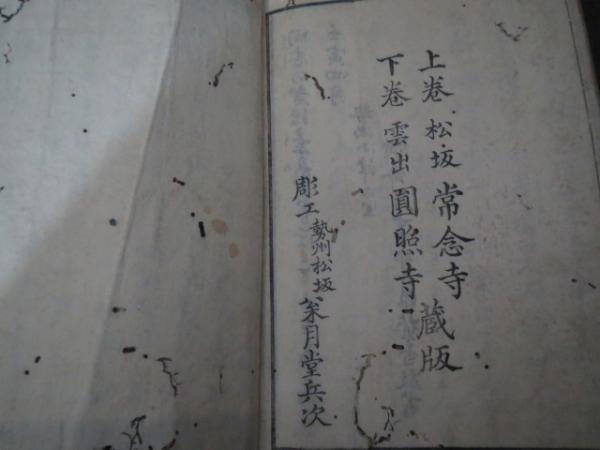 上巻 松坂 常念寺 蔵版
下巻 雲出 圓照寺
彫工 勢州松坂 月堂兵次